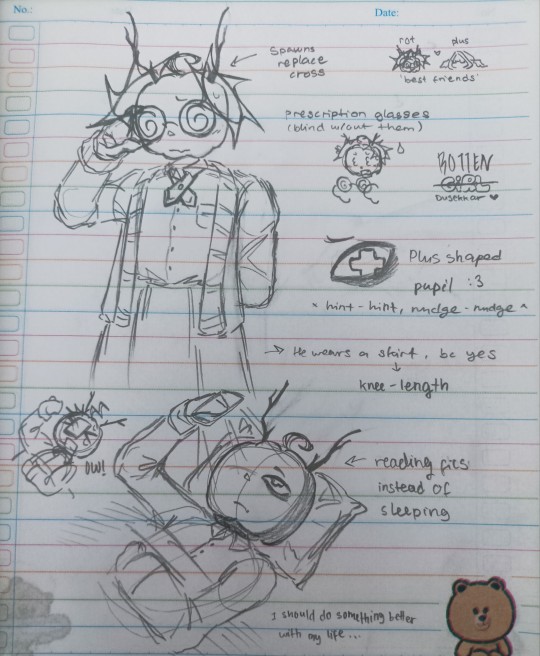 No.:
Date:
Spawns
replace
cross
rot plus
'best friends'
prescription glasses
(blind w/out them)
ROTTEN
Dusekkar
Plus shaped
pupil :3
^ hint-hint, nudge-nudge ^
He wears a skirt, bc yes
knee-length
OW!
reading fics
instead of
sleeping
I should do something better
with my life...